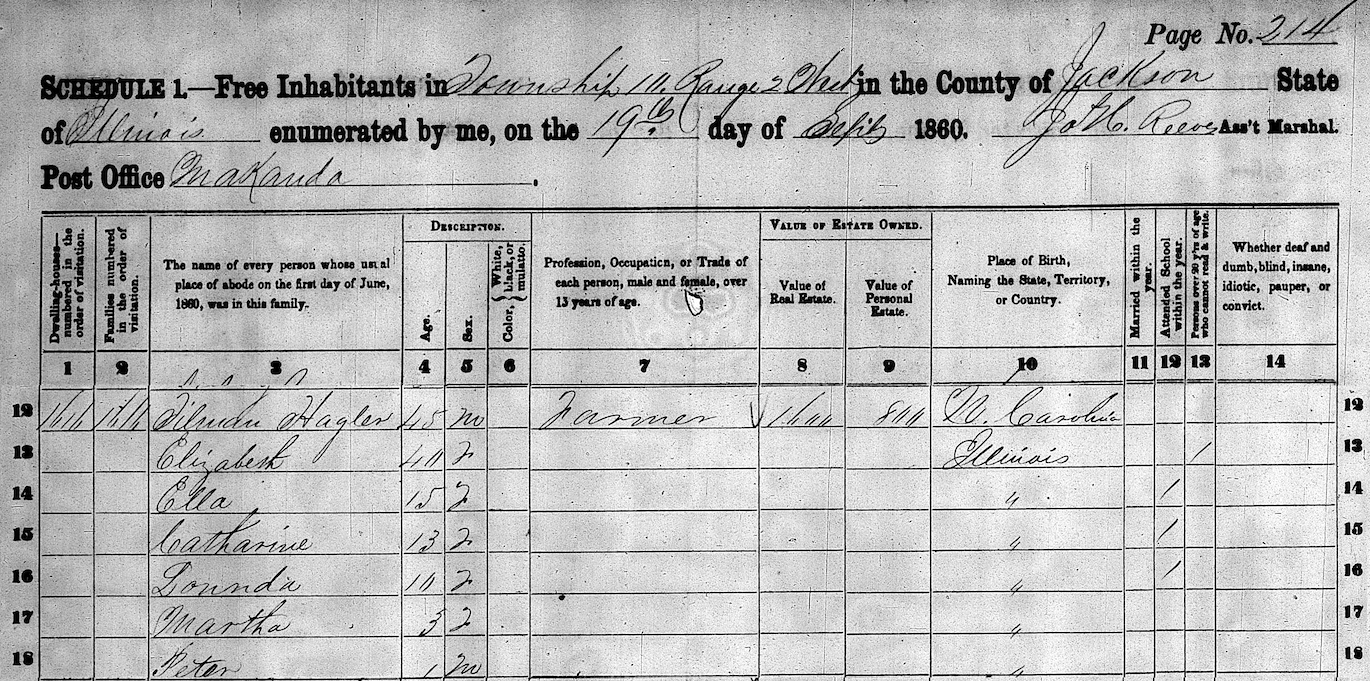 Page No. 214
SCHEDULE 1.—Free Inhabitants in Township 10 Range 2 West in the County of Jackson State
of Illinois enumerated by me, on the 19th day of Sept 1860. Reeves Ass't Marshal.
Post Office Makanda.
Dwelling-houses—numbered in the order of visitation.
Families numbered in the order of visitation.
The name of every person whose usual place of abode on the first day of June, 1860, was in this family.
DESCRIPTION.
Age.
Sex.
Color, { White, black, or mulatto.
Profession, Occupation, or Trade of each person, male and female, over 15 years of age.
VALUE OF ESTATE OWNED.
Value of Real Estate.
Value of Personal Estate.
Place of Birth, Naming the State, Territory, or Country.
Married within the year.
Attended School within the year.
Persons over 20 y'rs of age who cannot read & write.
Whether deaf and dumb, blind, insane, idiotic, pauper, or convict.
1 2 3 4 5 6 7 8 9 10 11 12 13 14
12 Tilmon Hagler 45 m Farmer 800 N. Carolina 12
13 Elizabeth 40 f Illinois / 13
14 Ella 15 f " / 14
15 Catharine 13 f " / 15
16 10 f " / 16
17 Martha f " 17
18 Peter 1 m " 18